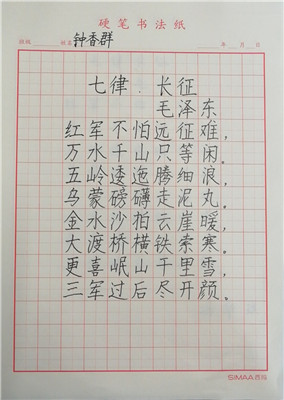 硬笔书法纸
班级 姓名 钟香群 年 月 日
七律.长征
毛泽东
红军不怕远征难，
万水千山只等闲。
五岭逶迤腾细浪，
乌蒙磅礴走泥丸。
金水沙拍云崖暖，
大渡桥横铁索寒。
更喜岷山千里雪，
三军过后尽开颜。
SIMAA